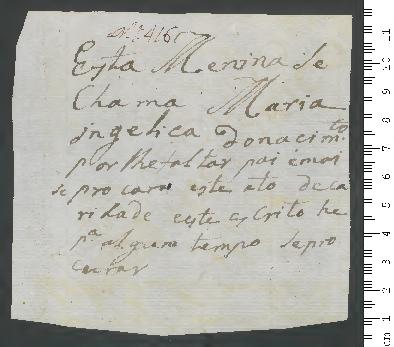 Nº 416
Esta Menina Se
Chama Maria
Angelica Donacim.to
por lhe faltar pai e mai
se procura este ato de ca
ridade este escrito he
p.a algum tempo Se pro
curar